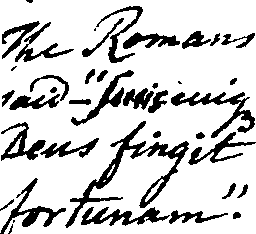 The Romans
said – "
Deus fingit
fortunam".